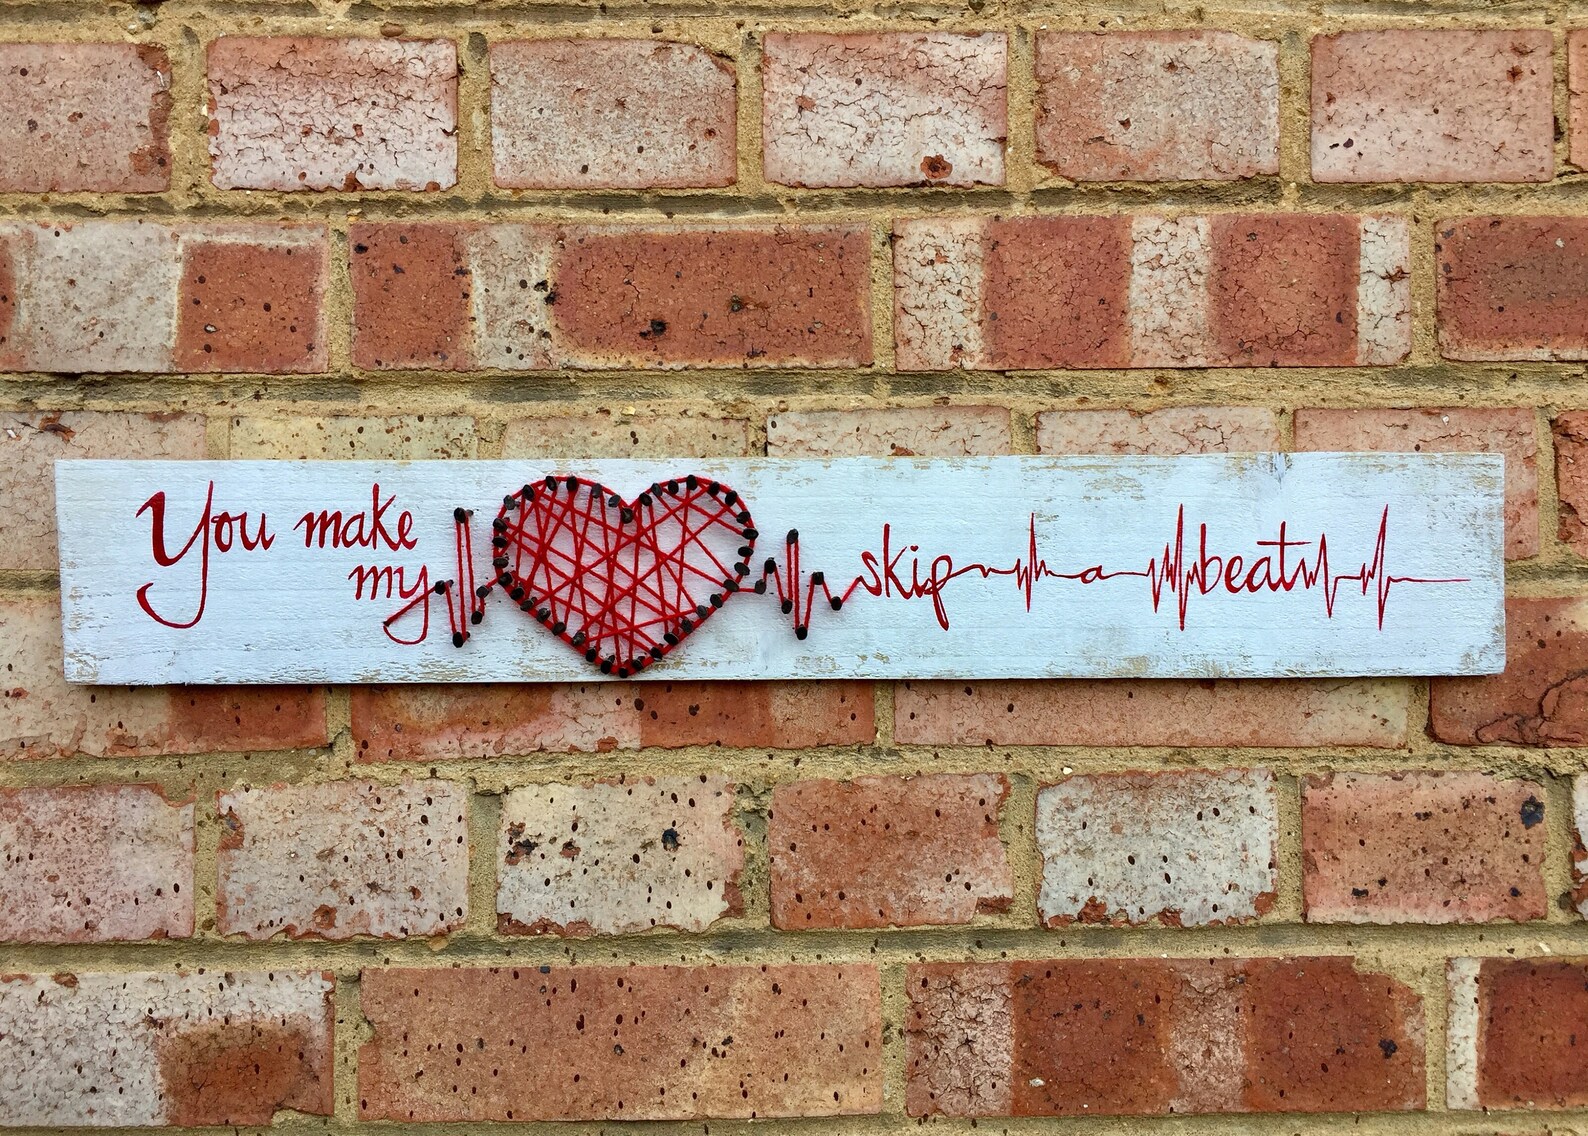 You make
my skip a beat